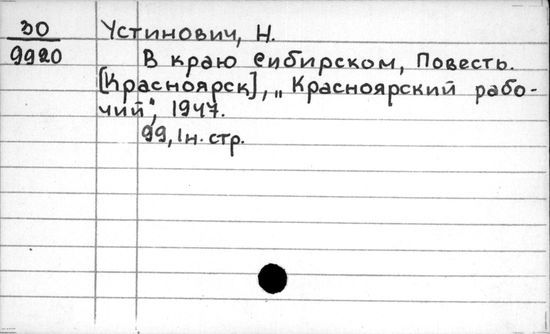 30
9920
Устинович, Н.
В краю сибирском, Повесть.
[Красноярск], „Красноярский рабо-
чий", 1947.
99, 1н. стр.